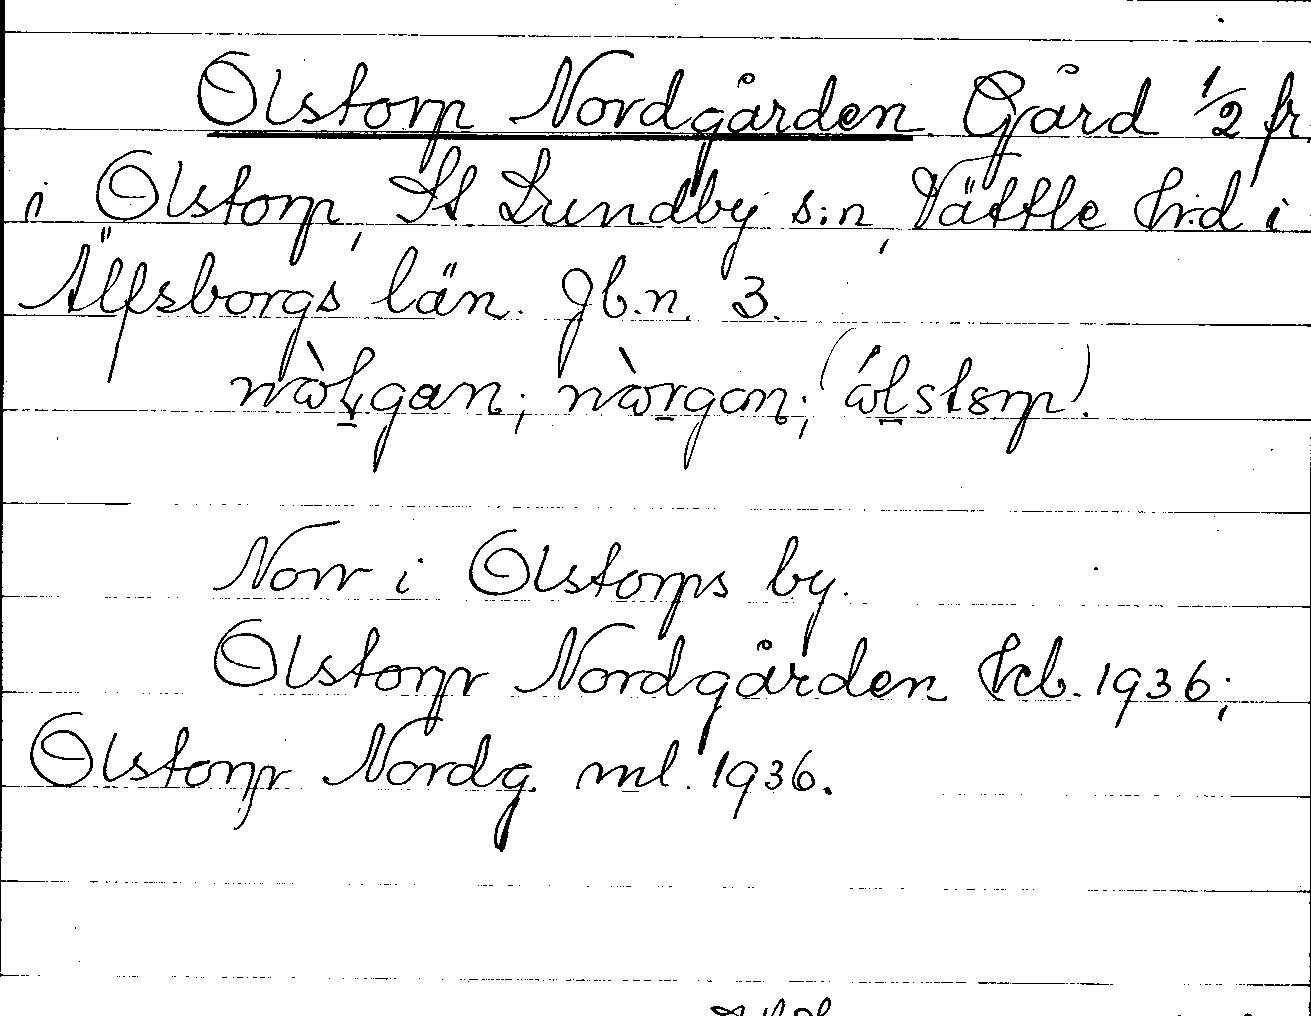 Olstorp Nordgården. Gård 1/2 fr
i Olstorp, St Lundby s:n, Vättle h:d i
Älfsborgs län. Jb.n. 3.
Norr i Olstorps by.
Olstorp Nordgården kb. 1936;
Olstorp Nordg. ml. 1936.